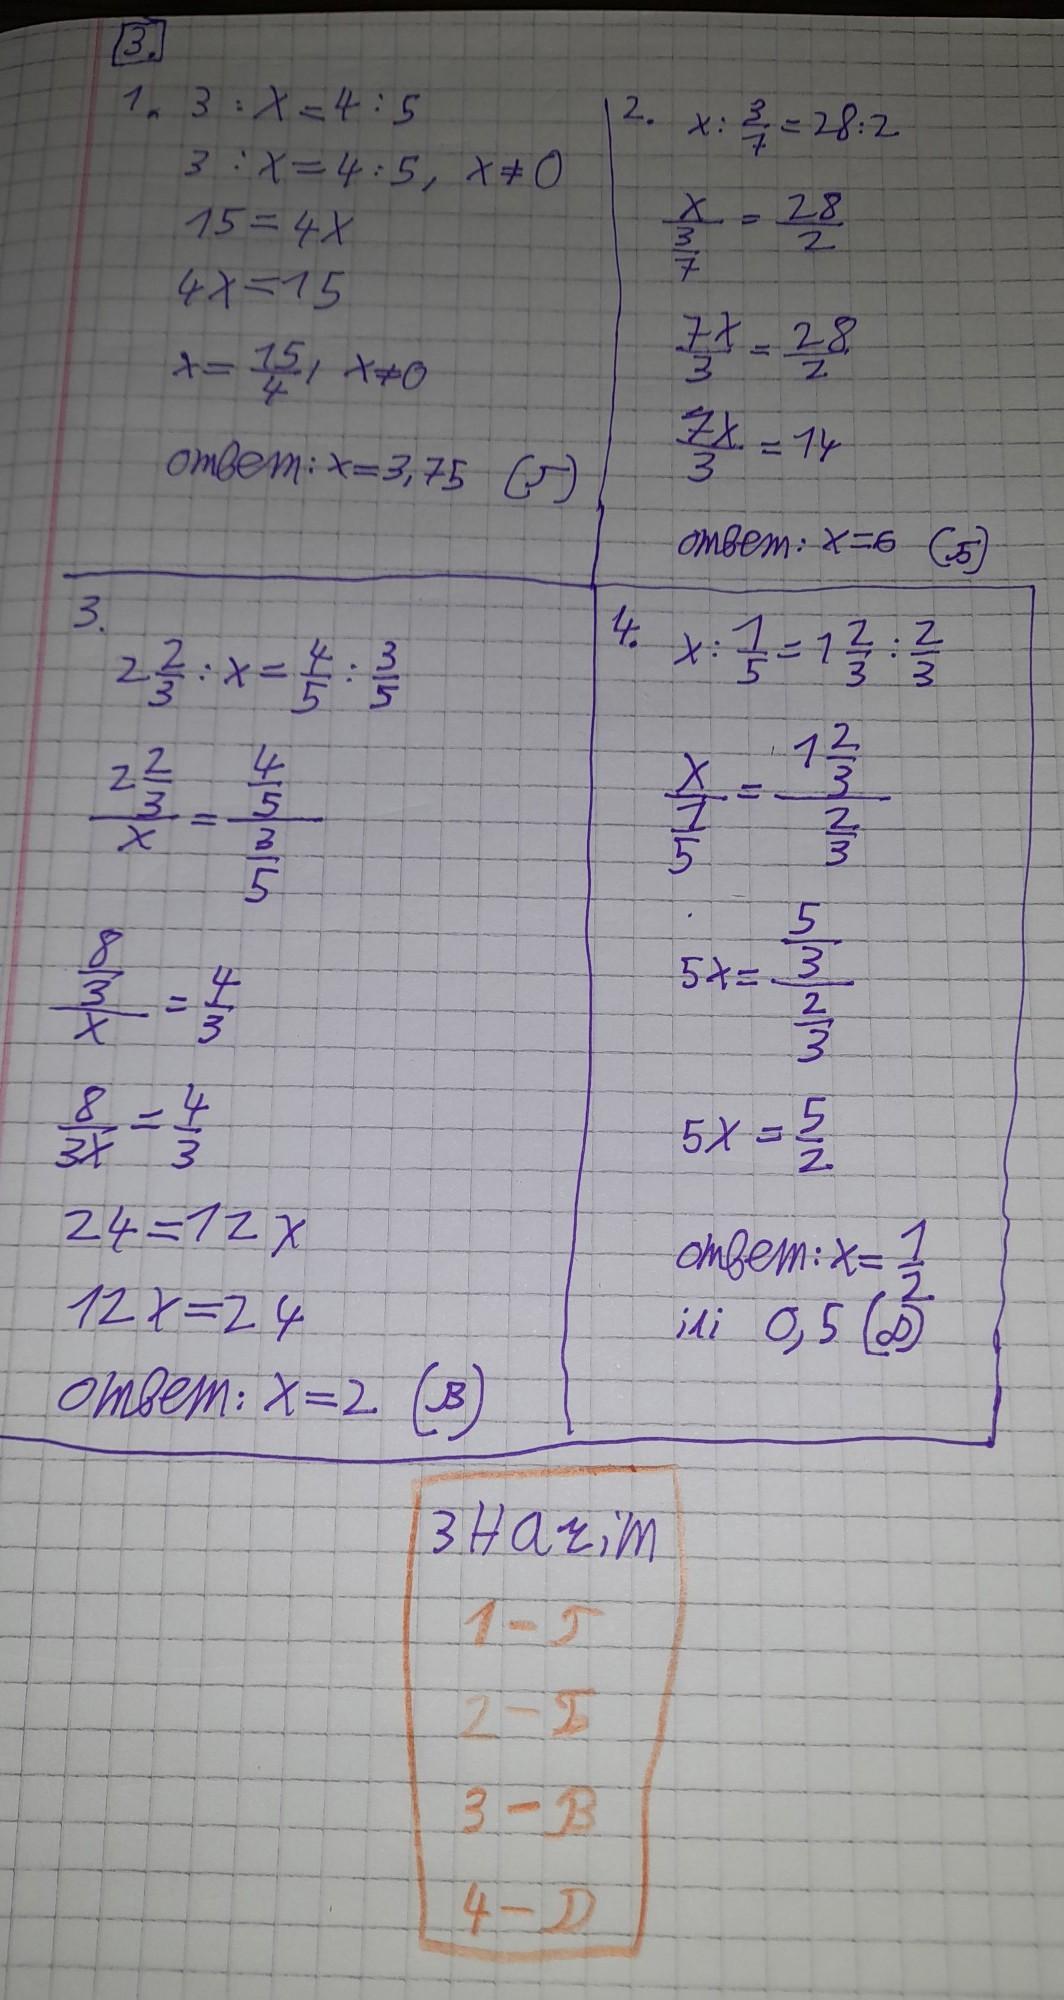 3.
1. 3 : x = 4 : 5
3 : x = 4 : 5, x ≠ 0
15 = 4x
4x = 15
x = 15/4, x ≠ 0
ответ: x = 3,75 (Г)
2. x : 3/7 = 28 : 2
x/(3/7) = 28/2
7x/3 = 28/2
7x/3 = 14
ответ: x = 6 (Б)
3.
2 2/3 : x = 4/5 : 3/5
(2 2/3)/x = (4/5)/(3/5)
(8/3)/x = 4/3
8/3x = 4/3
24 = 12x
12x = 24
ответ: x = 2 (В)
4. x : 1/5 = 1 2/3 : 2/3
x/(1/5) = (1 2/3)/(2/3)
5x = (5/3)/(2/3)
5x = 5/2
ответ: x = 1/2
ілі 0,5 (D)
1 - Г
2 - Б
3 - В
4 - D